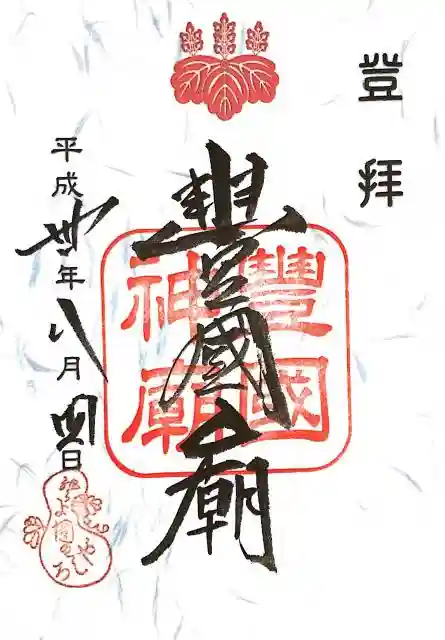 登拝
豊國廟
豐國
神廟
平成卅年八月四日